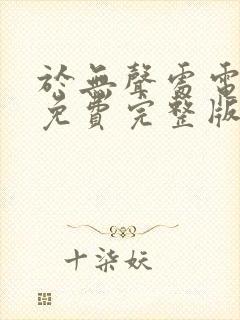 於無聲處雷電
免費完整版
十柒妖